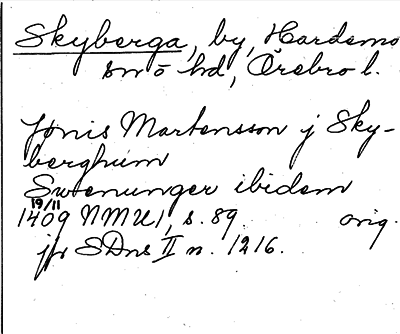 Skyberga, by, Hardemo
sn o hd, Örebro l.
Jønis Martensson j Sky-
berghum
Swenunger ibidem
19/11
1409 NMU 1, s. 89. orig.
jfr SDns II n. 1216.